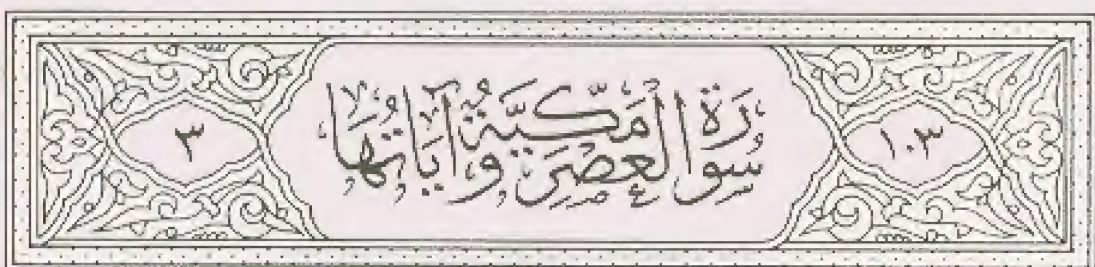 ١٠٣
سُورَةُ الْعَصْرِ مَكِّيَّةٌ وَآيَاتُهَا
٣